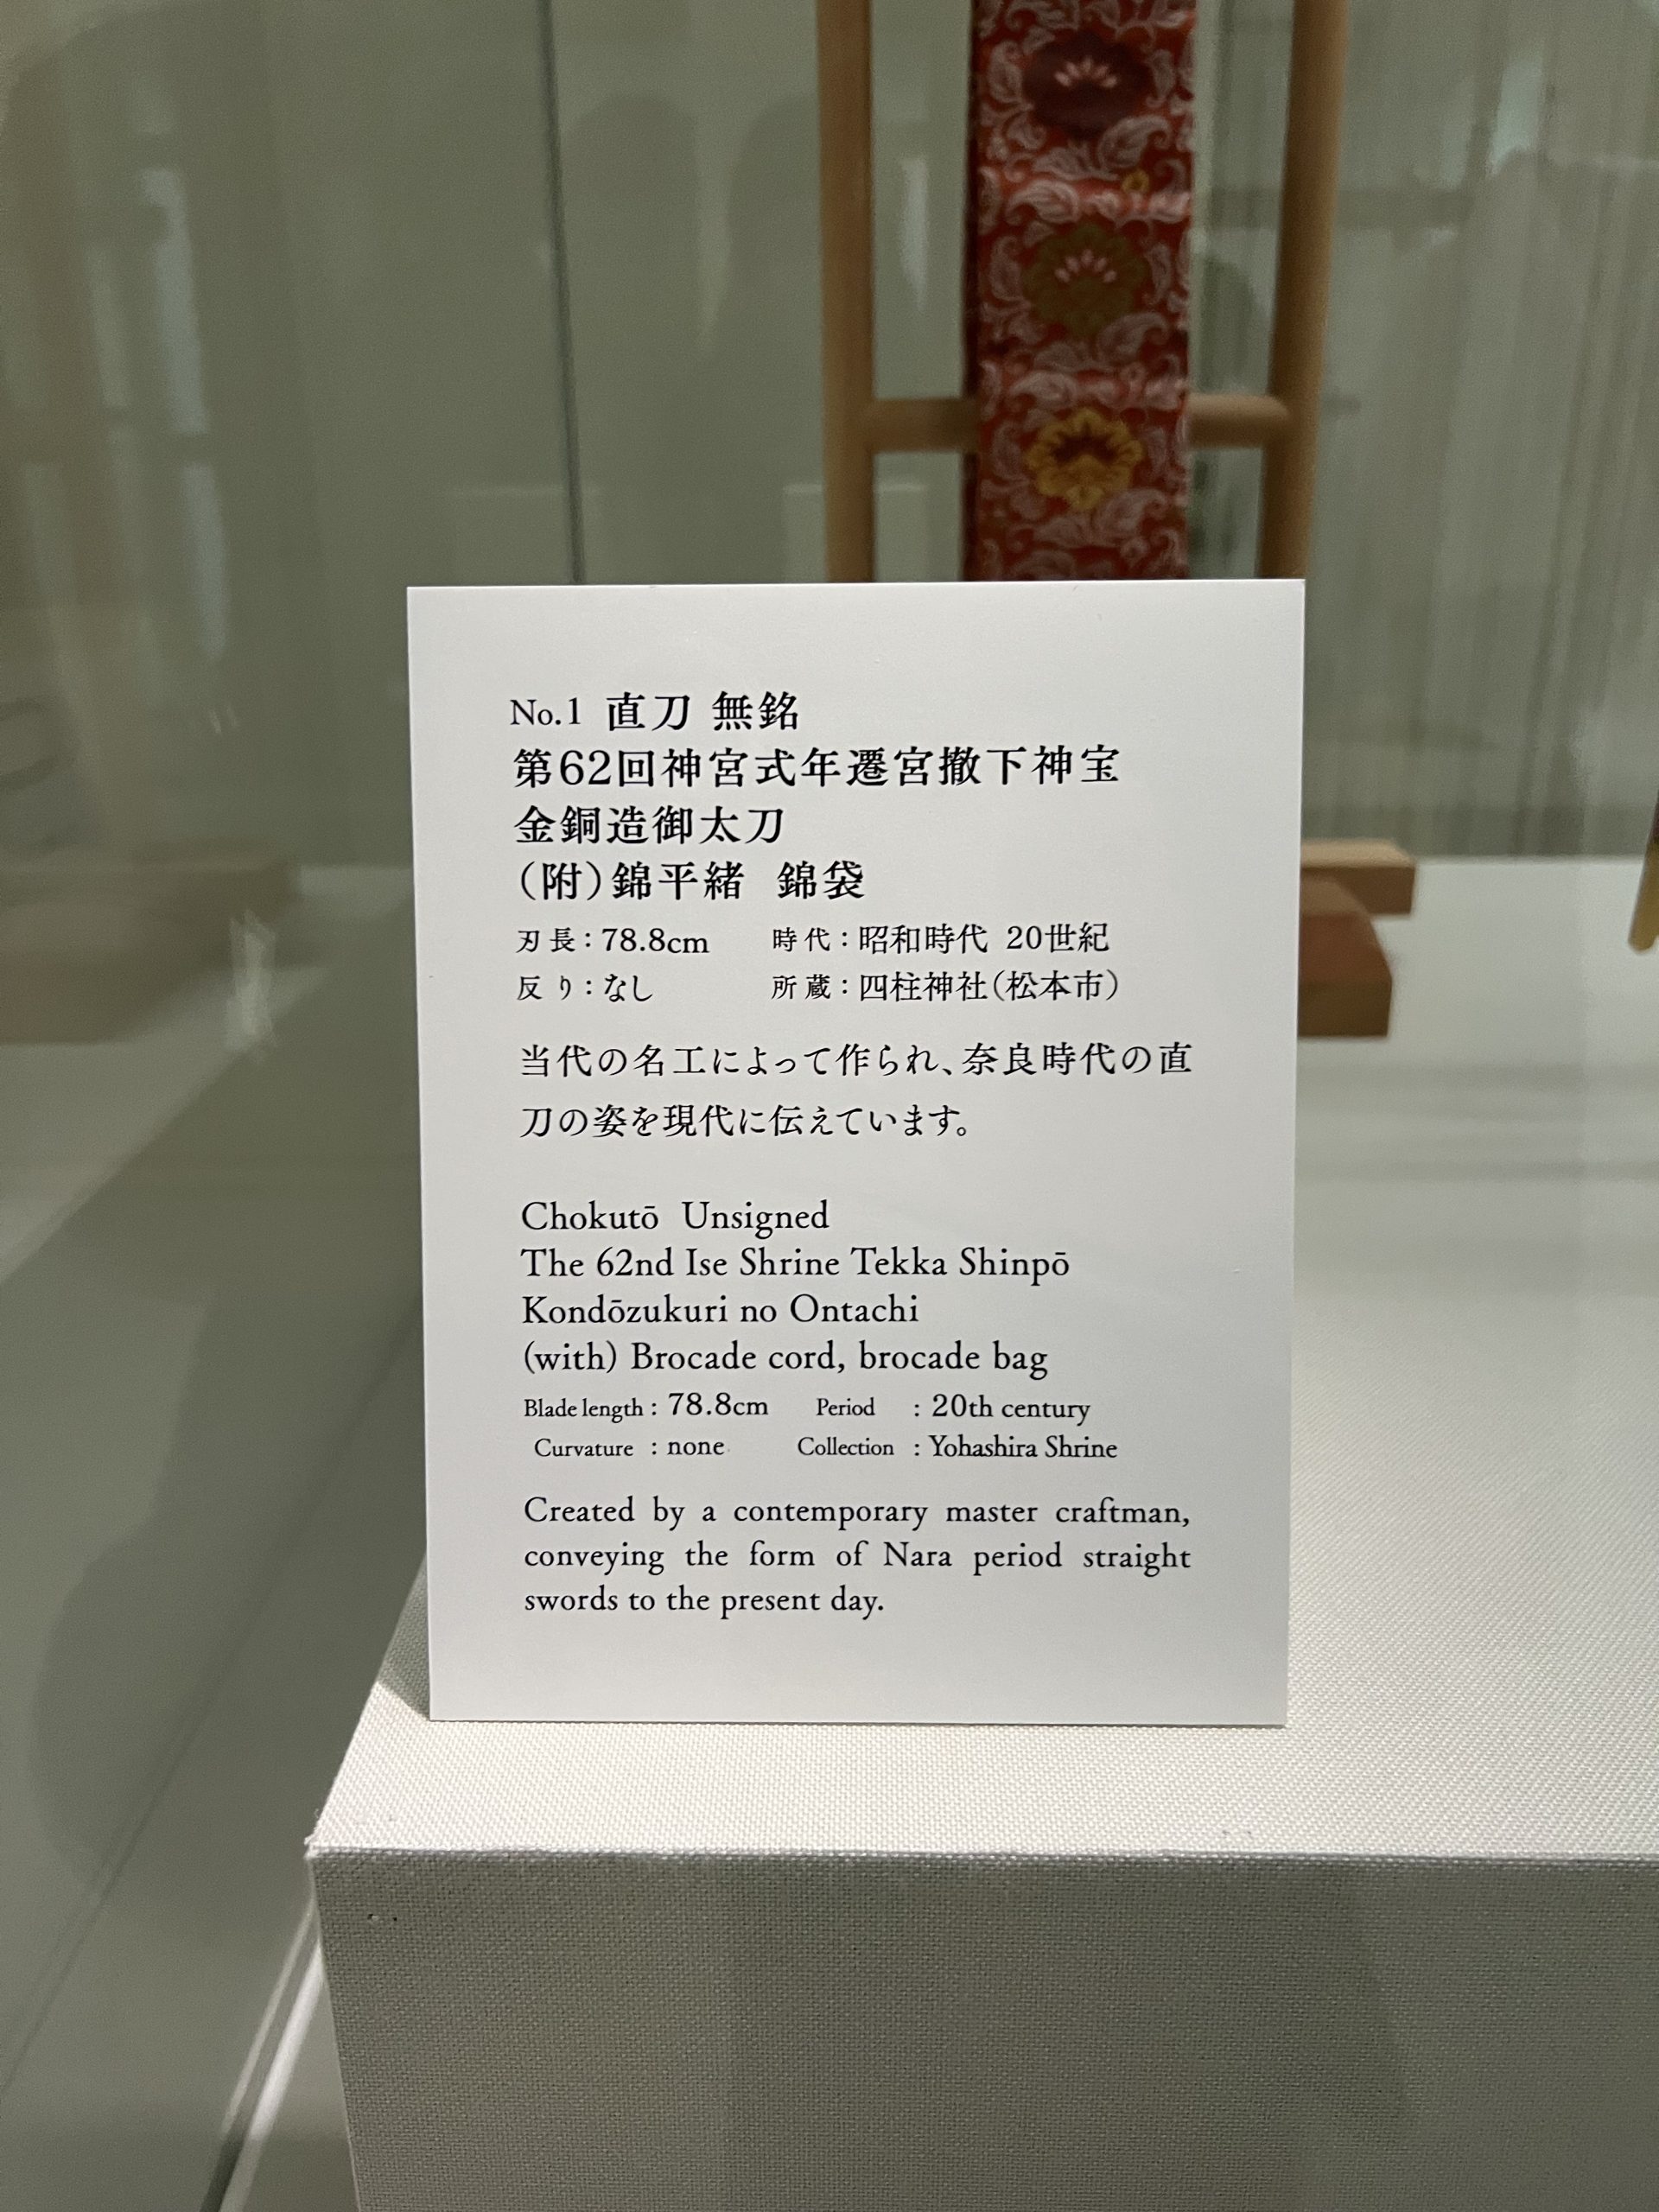 No.1 直刀 無銘
第62回神宮式年遷宮撤下神宝
金銅造御太刀
（附）錦平緒 錦袋
刃長：78.8cm 時代：昭和時代 20世紀
反り：なし 所蔵：四柱神社（松本市）
当代の名工によって作られ、奈良時代の直
刀の姿を現代に伝えています。
Chokutō Unsigned
The 62nd Ise Shrine Tekka Shinpō
Kondōzukuri no Ontachi
(with) Brocade cord, brocade bag
Blade length : 78.8cm Period : 20th century
Curvature : none Collection : Yohashira Shrine
Created by a contemporary master craftman,
conveying the form of Nara period straight
swords to the present day.